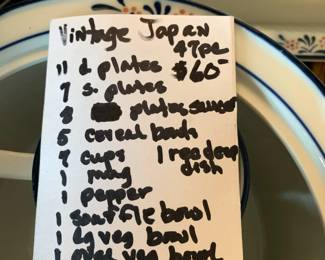 Vintage Japan
47pc
11 d plates $60-
7 s. plates
8 plates saucer
5 cereal bowls
7 cups 1 reg dish
1 mug
1 pepper
1 souffle bowl
1 lg veg bowl
1 oval veg bowl